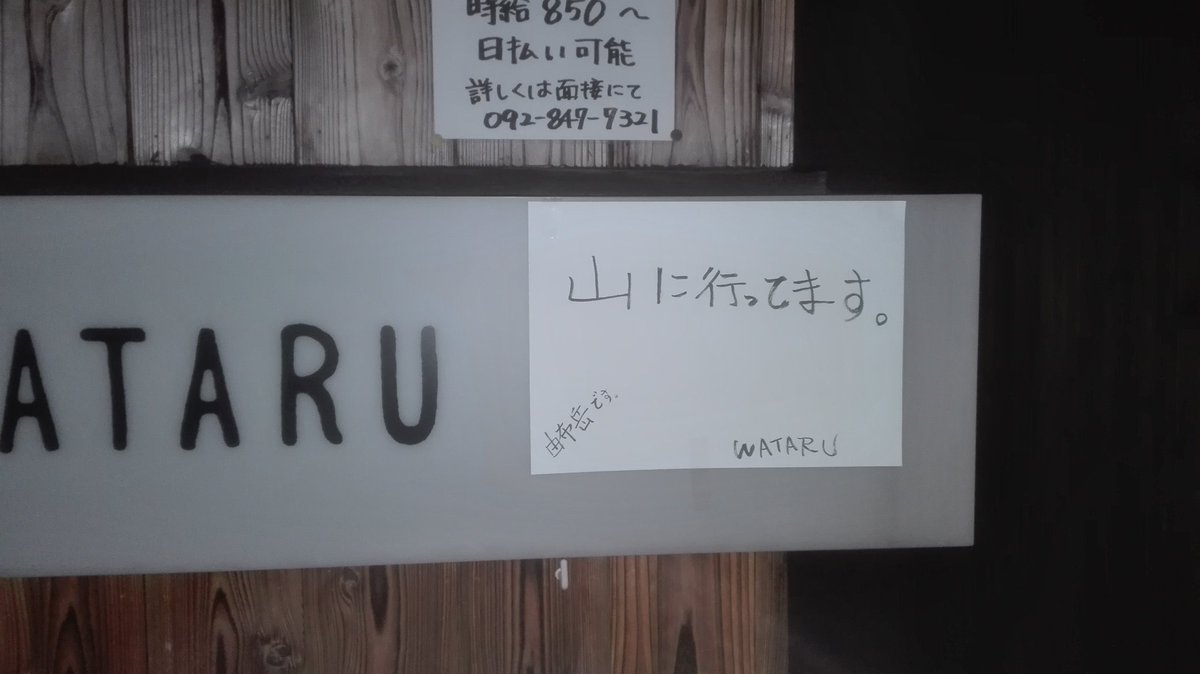 時給850〜
日払い可能
詳しくは面接にて
092-847-7321
ATARU
山に行ってます。
由布岳です。
WATARU